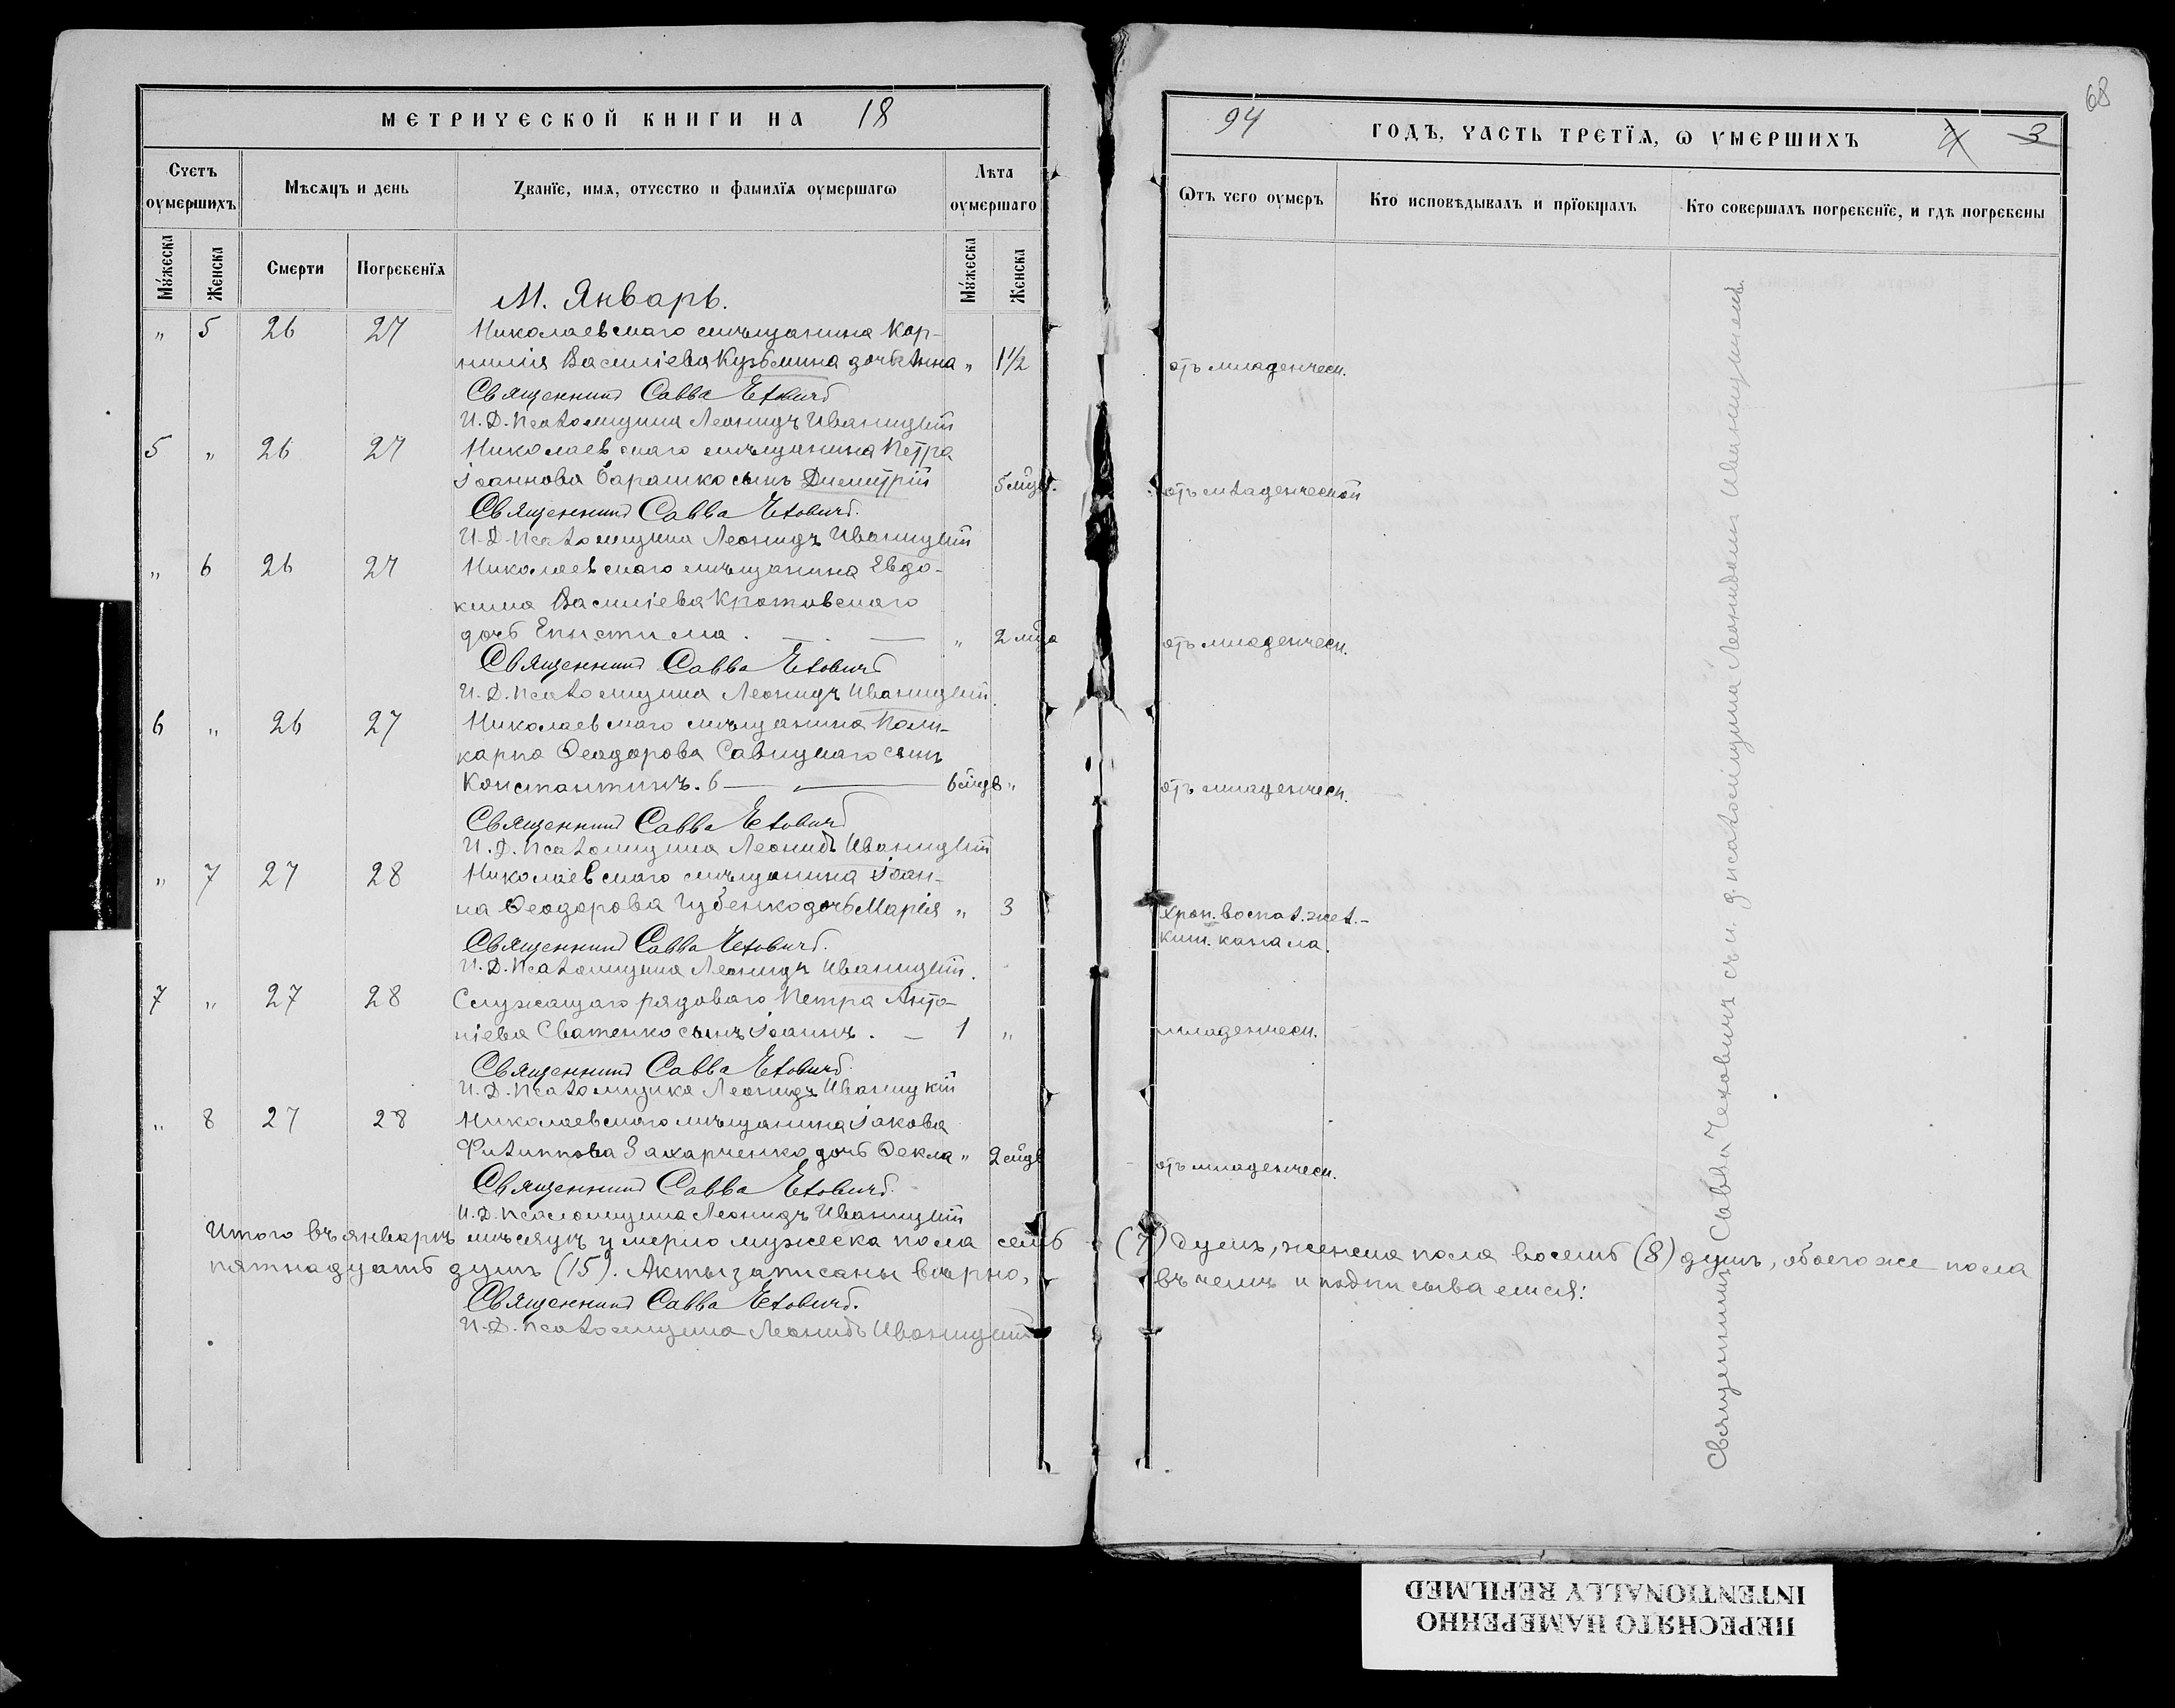 МЕТРИЧЕСКОЙ КНИГИ НА 18
Счетъ оумершихъ
Мѣсяцъ и день
Званїе, имя, отчество и фамилїя оумершагѡ
Лѣта оумершаго
Мꙋжеска
Женска
Смерти
Погребенїя
Мꙋжеска
Женска
М. Январь.
" 5 26 27 Николаевскаго мѣщанина Кор-
нилія Василіева Кузьмина дочь Анна " 1 1/2
Священникъ Савва Чеховичъ
И. Д. Псаломщика Леонидъ Иваницкій
5 " 26 27 Николаевскаго мѣщанина Петра
Іоаннова Барашко сынъ Димитрій 5 мцв.
Священникъ Савва Чеховичъ.
И. Д. Псаломщика Леонидъ Иваницкій
" 6 26 27 Николаевскаго мѣщанина Евдо-
кима Василіева Кротовскаго
дочь Епистима. " 2 мца
Священникъ Савва Чеховичъ
И. Д. Псаломщика Леонидъ Иваницкій.
6 " 26 27 Николаевскаго мѣщанина Поли-
карпа Ѳеодорова Савицкаго сынъ
Константинъ. 6 — 6 мцв "
Священникъ Савва Чеховичъ
И. Д. Псаломщика Леонидъ Иваницкій
" 7 27 28 Николаевскаго мѣщанина Іоан-
на Ѳеодорова Губенко дочь Марія " 3
Священникъ Савва Чеховичъ.
И. Д. Псаломщика Леонидъ Иваницкій.
7 " 27 28 Служащаго рядоваго Петра Анто-
ніева Сватенко сынъ Іоаннъ. — 1 "
Священникъ Савва Чеховичъ.
И. Д. Псаломщика Леонидъ Иваницкій
" 8 27 28 Николаевскаго мѣщанина Іакова
Филиппова Захарченко дочь Ѳекла " 2 мцв
Священникъ Савва Чеховичъ.
И. Д. Псаломщика Леонидъ Иваницкій
Итого въ январѣ мѣсяцѣ умерло мужеска пола семь
пятнадцать душъ (15). Акты записаны вѣрно,
Священникъ Савва Чеховичъ.
И. Д. Псаломщика Леонидъ Иваницкій
68
94 ГОДЪ, ЧАСТЬ ТРЕТЇЯ, Ѡ УМЕРШИХЪ 3
Ѿтъ чего оумеръ
Кто исповѣдывалъ и прїобщалъ
Кто совершалъ погребенїе, и гдѣ погребены
отъ младенческ.
отъ младенческой
отъ младенческ.
отъ младенческ.
Хрон. воспал. жел.-
киш. канала.
младенческ.
отъ младенческ.
(7) душъ, женска пола восемь (8) душъ, обоего же пола
въ чемъ и подписываемся:
Священникъ Савва Чеховичъ съ и. д. псаломщика Леонидомъ Иваницкимъ.
ПЕРЕСНЯТО НАМЕРЕННО
INTENTIONALLY REFILMED